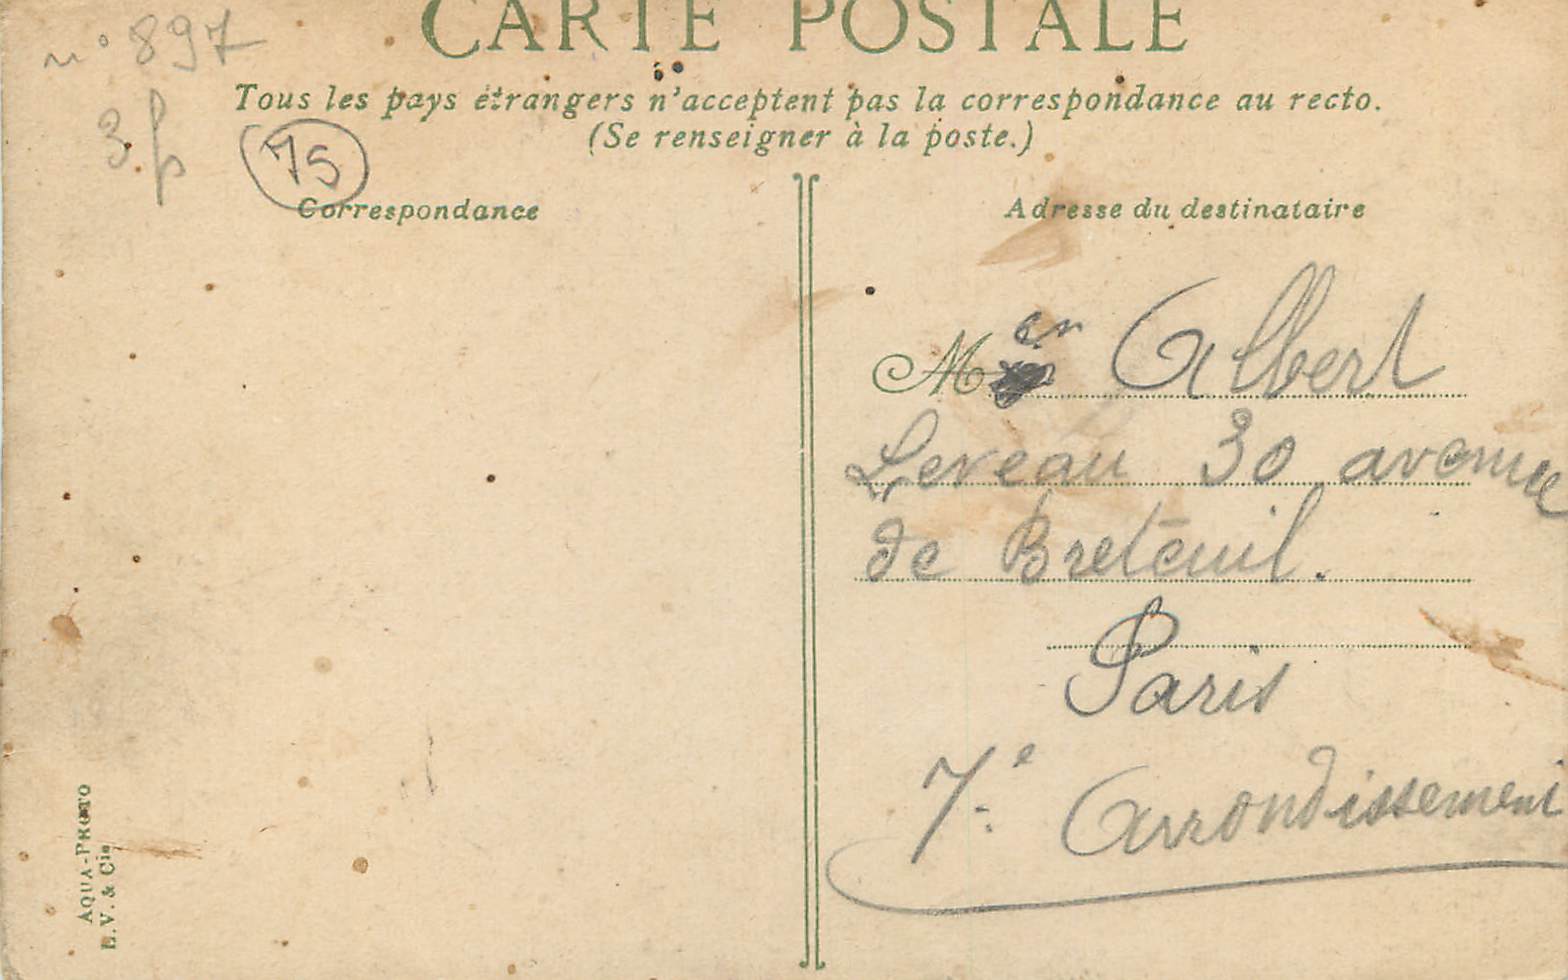 n° 897
CARTE POSTALE
Tous les pays étrangers n'acceptent pas la correspondance au recto.
(Se renseigner à la poste.)
3 f
75
Correspondance
Adresse du destinataire
Mer Albert
Leveau 30 avenue
de Breteuil.
Paris
7e Arrondissement
AQUA-PHOTO
L.V. & Cie